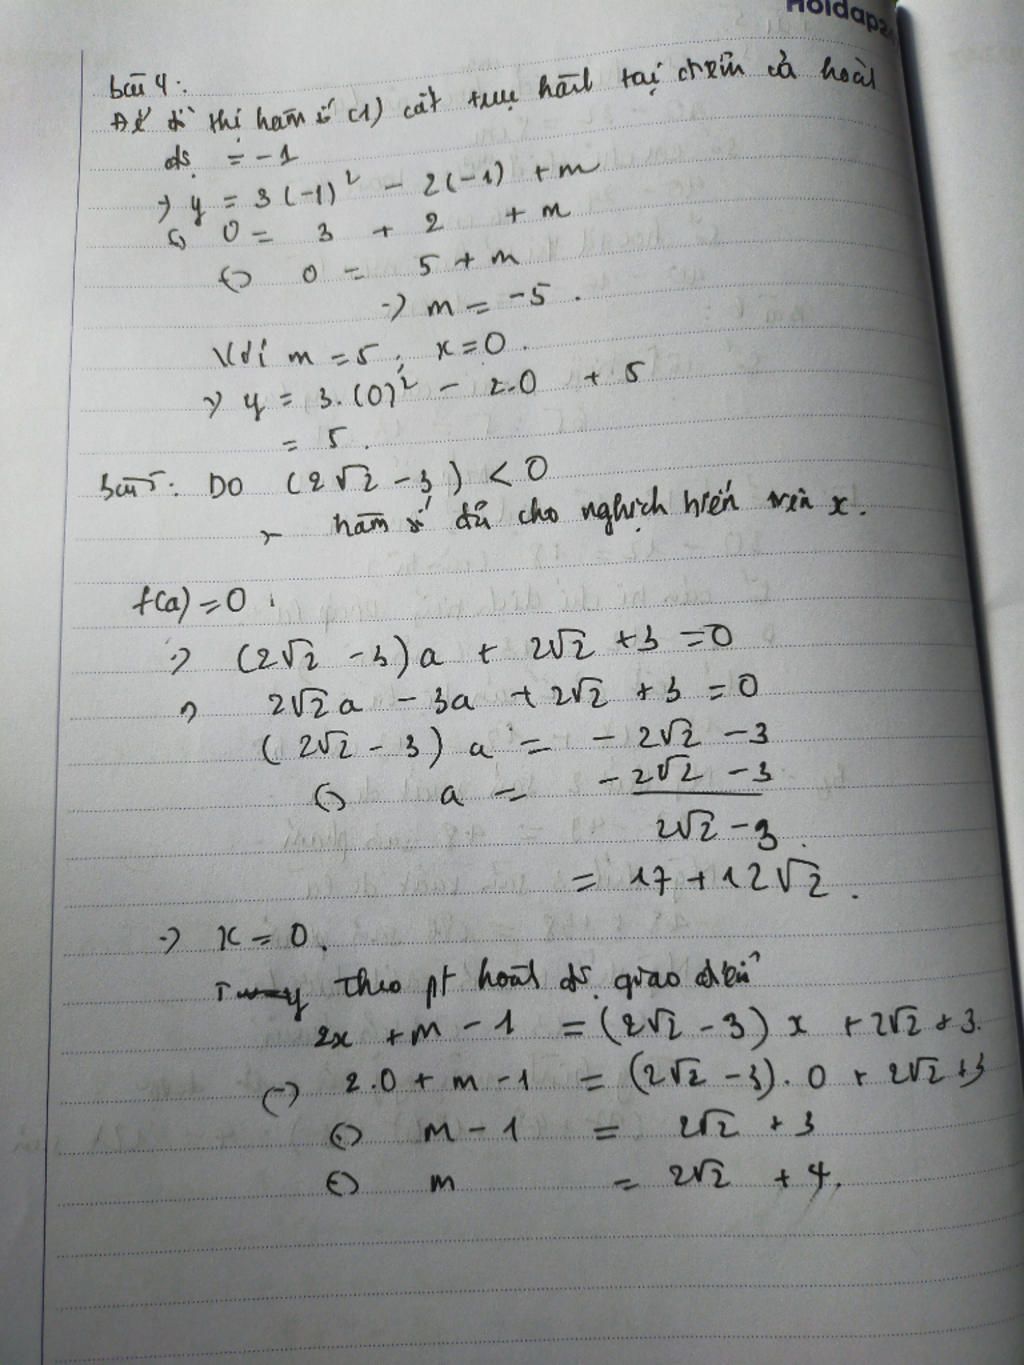 Hoidap2
bài 4:
Để đồ thị hàm số (1) cắt trục hành tại điểm có hoành
độ = -1
=> y = 3(-1)² - 2(-1) + m
<=> 0 = 3 + 2 + m
<=> 0 = 5 + m
=> m = -5.
Với m = 5; x = 0.
=> y = 3.(0)² - 2.0 + 5
= 5.
bài 5: Do (2√2 - 3) < 0
=> hàm số đã cho nghịch biến trên x.
f(a) = 0.
=> (2√2 - 3)a + 2√2 + 3 = 0
=> 2√2a - 3a + 2√2 + 3 = 0
(2√2 - 3) a = - 2√2 - 3
<=> a = (-2√2 - 3)/(2√2 - 3).
= 17 + 12√2.
=> x = 0.
theo pt hoành độ giao điểm
2x + m - 1 = (2√2 - 3) x + 2√2 + 3.
<=> 2.0 + m - 1 = (2√2 - 3). 0 + 2√2 + 3
<=> m - 1 = 2√2 + 3
<=> m = 2√2 + 4.